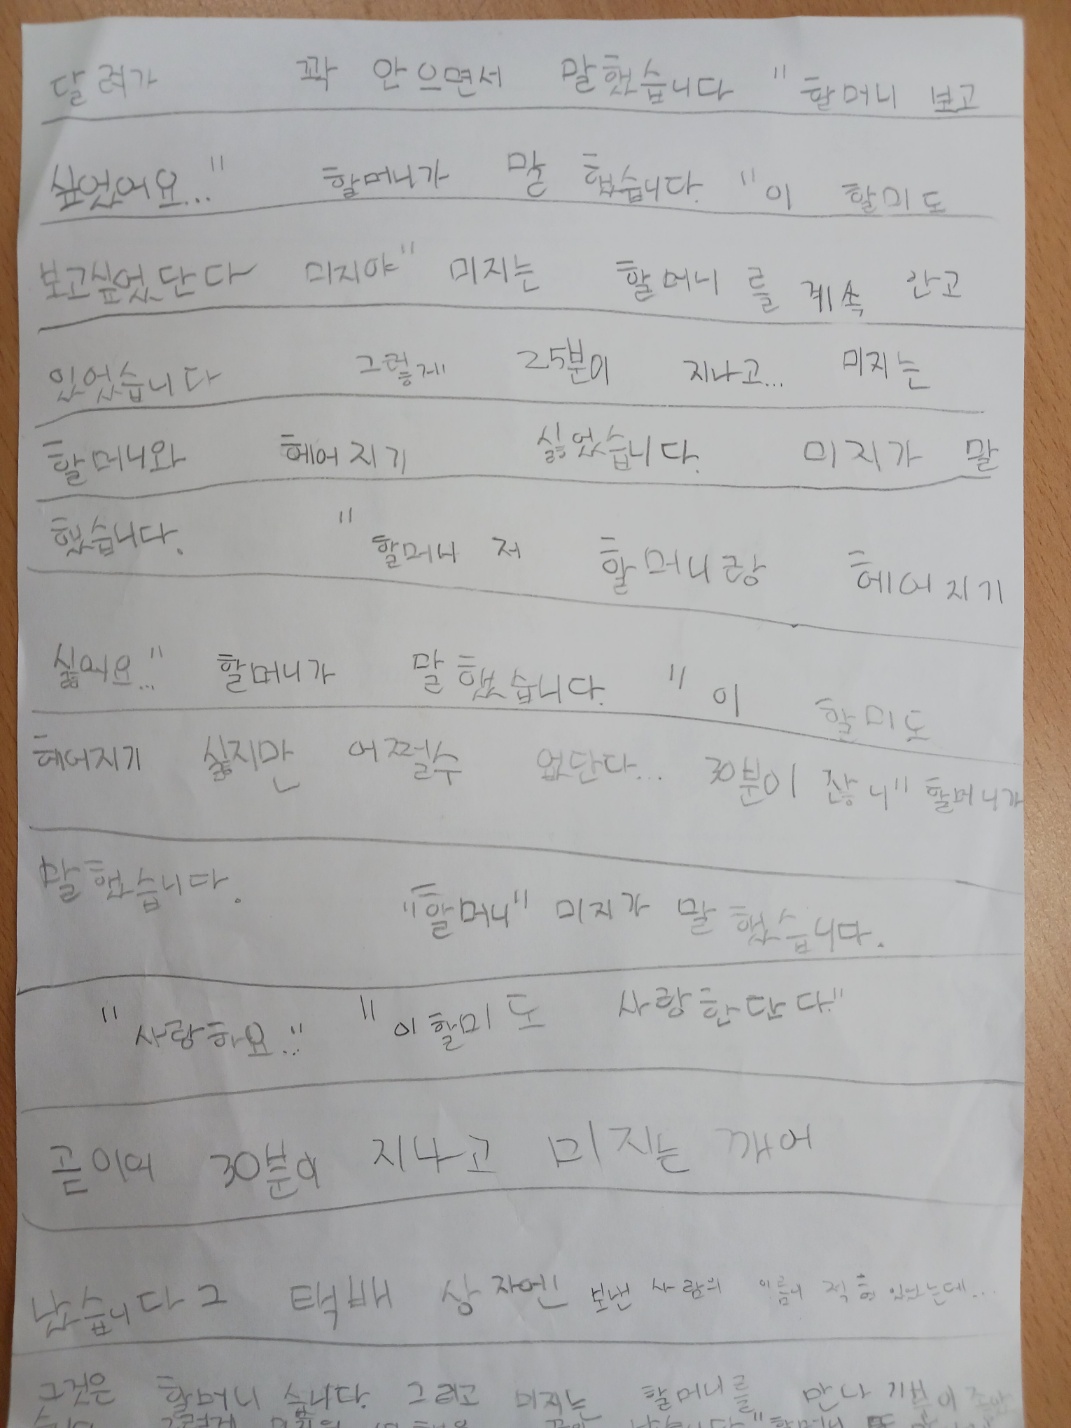 달려가 꽉 안으면서 말했습니다 "할머니 보고
싶었어요..." 할머니가 말 했습니다. "이 할미도
보고싶었단다 미지야" 미지는 할머니를 계속 안고
있었습니다 그렇게 25분이 지나고... 미지는
할머니와 헤어지기 싫었습니다. 미지가 말
했습니다. "할머니 저 할머니랑 헤어지기
싫어요..." 할머니가 말했습니다. "이 할미도
헤어지기 싫지만 어쩔수 없단다... 30분이 잖니" 할머니가
말했습니다. "할머니" 미지가 말 했습니다.
"사랑하요..." "이할미도 사랑한단다"
곧이어 30분이 지나고 미지는 깨어
났습니다 그 택배 상자엔 보낸 사람의 이름이 적혀 있었는데...
그것은 할머니 습니다. 그리고 미지는 할머니를 만나 기분이